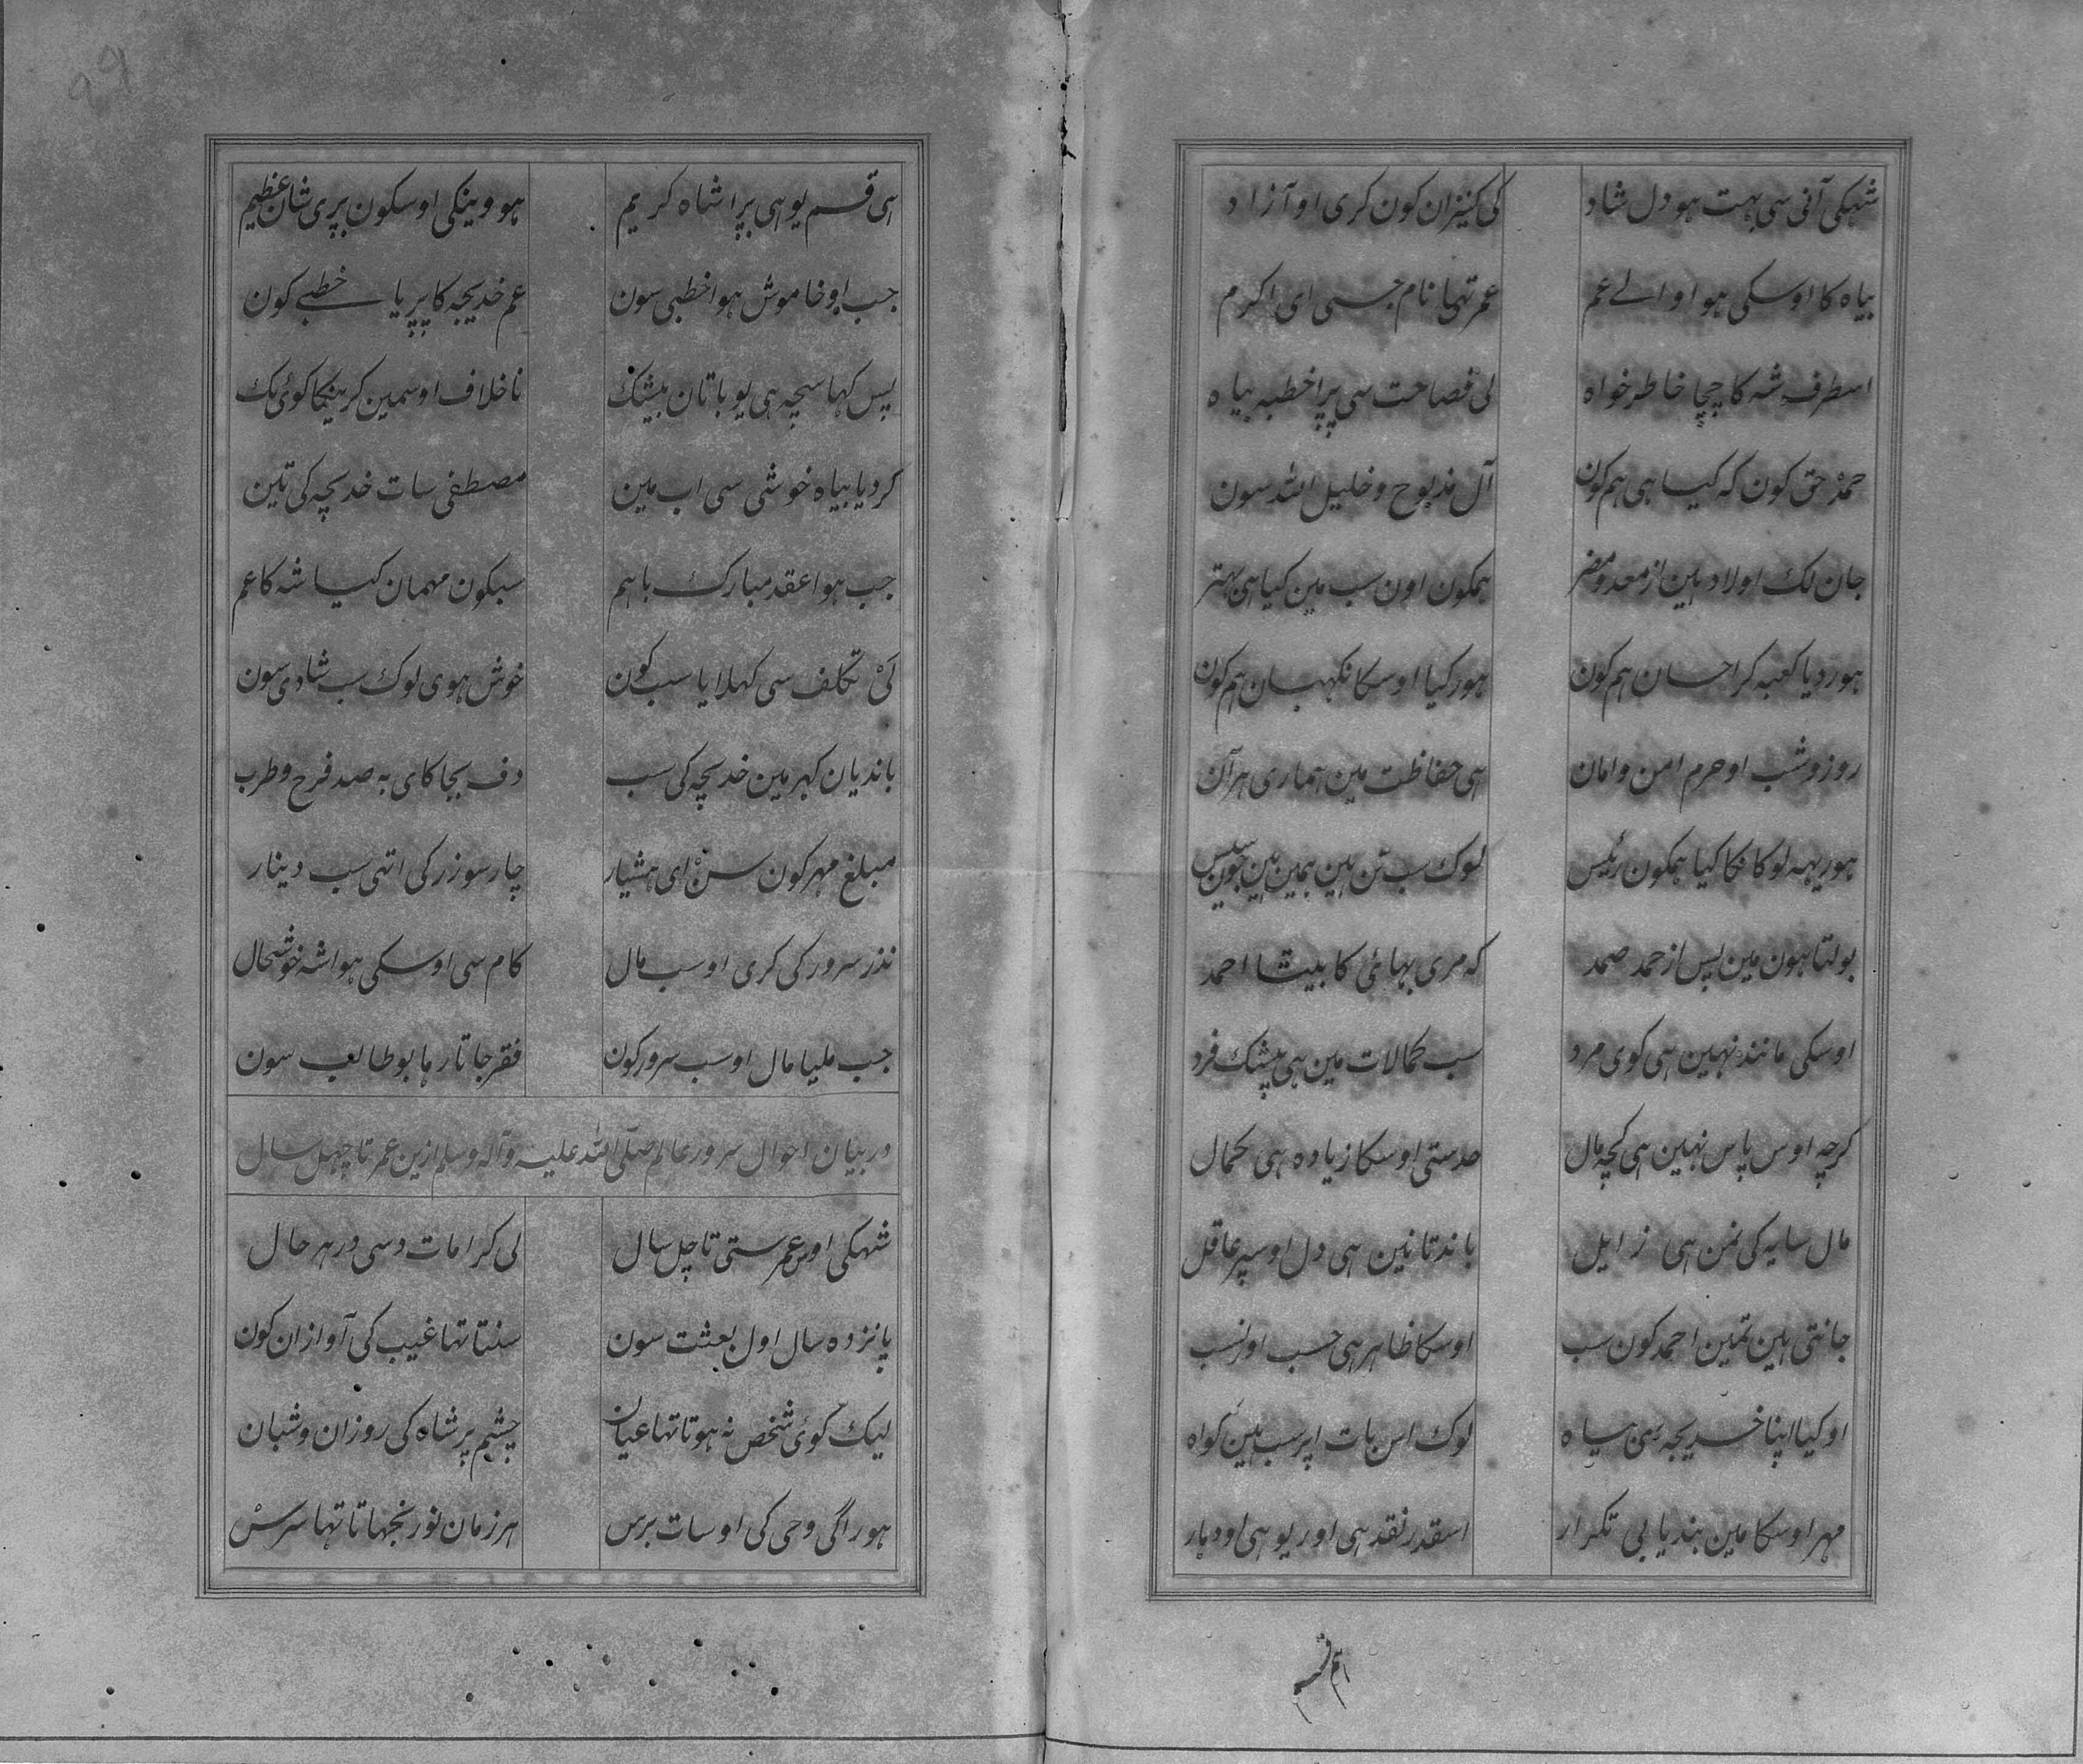 شہکی آنی سی بہت ہو دل شاد کی کنیزان کون کری او آزاد
بیاہ کا اوسکی ہوا والے عم عمر تہا نام جسی ای اکرم
اسطرف شہ کا چچا خاطر خواہ لی فصاحت سی پڑا خطبہ بیاہ
حمد حق کون کہ کیا ہی ہم کون آل مذبوح و خلیل اللہ سون
جان لک اولاد ہین از معد و مضر ہمکون اون سب مین کیا ہی بہتر
ہور دیا کعبہ کر احسان ہم کون ہور کیا اوسکا نکہبان ہم کون
روز و شب او حرم امن و امان ہی حفاظت مین ہماری ہر آن
ہور یہہ لوکانکا کیا ہمکون رئیس لوک سب تن ہین ہمین ہین جون
بولتا ہون مین پس از حمد صمد کہ مری بہائی کا بیٹا احمد
اوسکی مانند نہین ہی کوی مرد سب کمالات مین ہی بیشک فرد
کرچہ اوس پاس نہین ہی کچہ مال حد ستی اوسکا زیادہ ہی کمال
مال سایہ کی نمن ہی زایل باندتا نین ہی دل اوسپر عاقل
جانتی ہین تمین احمد کون سب اوسکا ظاہر ہی حسب اور نسب
او کیا اپنا خدیجہ سی بیاہ لوک اس بات اپر سب ہین کواہ
مہر اوسکا مین بندیا بی تکرار اسقدر نقد ہی اور یو ہی اودہار
ہی قسم
ہی قسم یو ہی بڑا شاہ کریم ہووینکی اوسکون بڑی شان عظیم
جب او خاموش ہوا خطبی سون عم خدیجہ کا پڑیا خطبے کون
پس کہا سچہ ہی یو باتان بیشک نا خلاف اوسمین کرینکا کوئی یک
کر دیا بیاہ خوشی سی اب مین مصطفی سات خدیجہ کی تین
جب ہوا عقد مبارک باہم سبکون مہمان کیا شہ کا عم
لئی تکلف سی کہلایا سب کون خوش ہوی لوک سب شادی سون
باندیان کہر مین خدیجہ کی سب دف بجا کای بہ صد فرح و طرب
مبلغ مہر کون سن ای ہشیار چار سو زر کی اتہی سب دینار
نذر سرور کی کری او سب مال کام سی اوسکی ہوا شہ خوشحال
جب ملیا مال او سب سرور کون فقر جاتا رہا بو طالب سون
در بیان احوال سرور عالم صلی اللہ علیہ وآلہ وسلم ازین عمر تا چہل سال
شہکی اوس عمر ستی تا چل سال لی کرامات دسی در ہر حال
پانزدہ سال اول بعثت سون سنتا تہا غیب کی آوازان کون
لیک کوئی شخص نہ ہوتا تہا عیان چشم پر شاہ کی روزان و شبان
ہور اگی وحی کی او سات برس ہر زمان نور نجہاتا تہا سرس